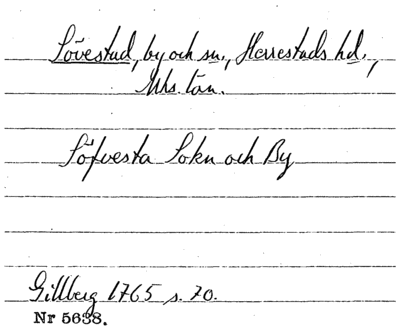 Lövestad, by och sn., Herrestads hd.,
Mhs. län.
Löfvesta Sokn och By
Gillberg 1765 s. 70.
Nr 5638.